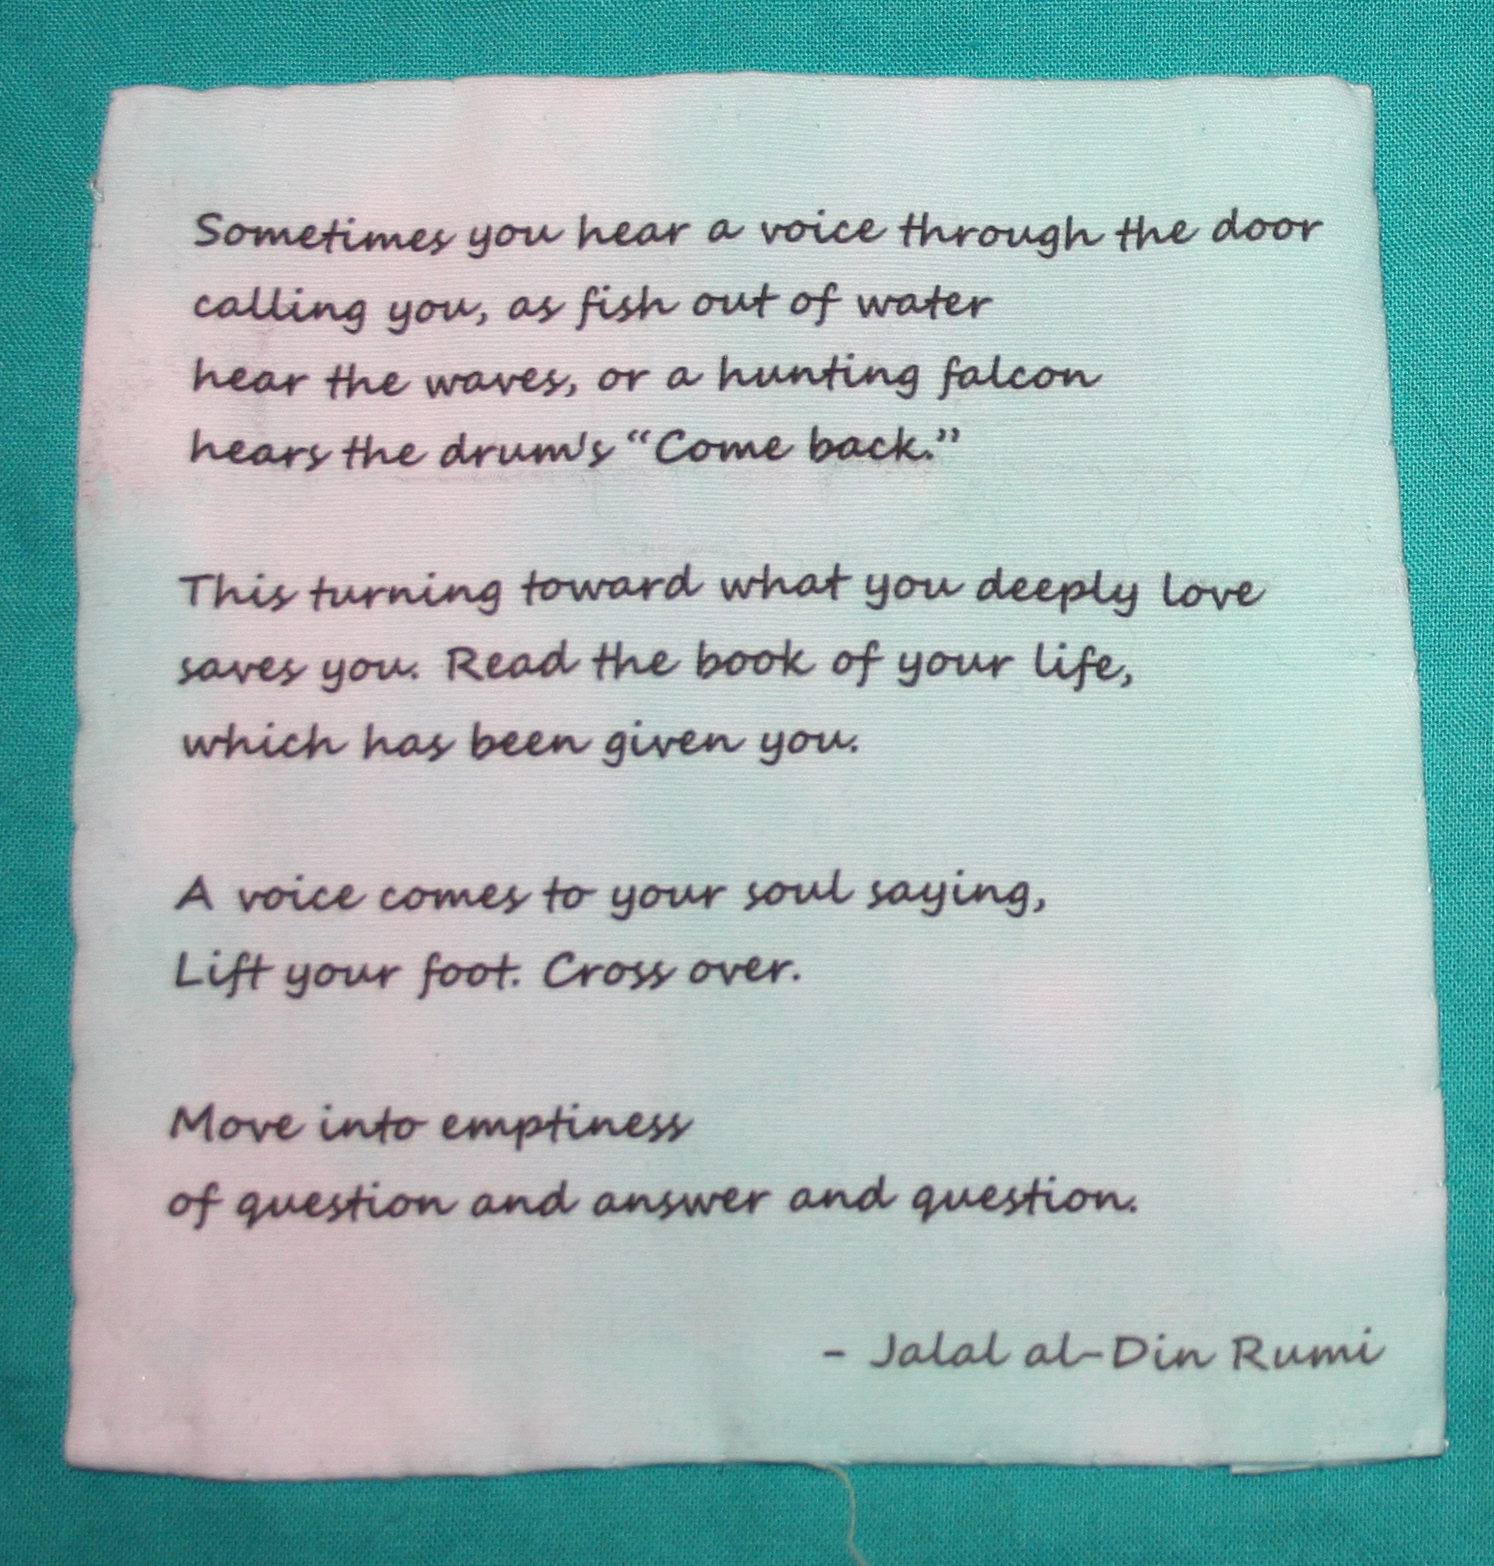 Sometimes you hear a voice through the door
calling you, as fish out of water
hear the waves, or a hunting falcon
hears the drum's “Come back.”
This turning toward what you deeply love
saves you. Read the book of your life,
which has been given you.
A voice comes to your soul saying,
Lift your foot. Cross over.
Move into emptiness
of question and answer and question.
- Jalal al-Din Rumi